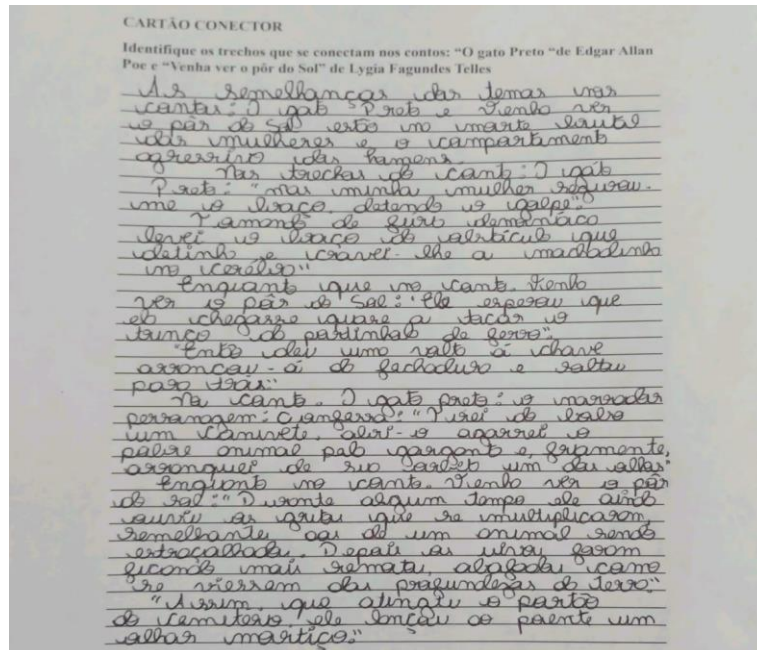 CARTÃO CONECTOR
Identifique os trechos que se conectam nos contos: “O gato Preto “de Edgar Allan
Poe e “Venha ver o pôr do Sol” de Lygia Fagundes Telles
As semelhanças dos temas nos
contos: O gato Preto e Venha ver
o pôr do Sol estão na morte brutal
das mulheres e o comportamento
agressivo dos homens.
Nos trechos do conto: O gato
Preto: "mas minha mulher segurou-
me o braço, detendo o golpe".
Tomando de furia demoníaco
levei o braço do obstáculo que
detinha e cravei-lhe a machadinha
no cerébro"
Enquanto que no conto Venha
ver o pôr do Sol: "Ele esperou que
ela chegasse quase a tocar o
trinco da portinhola de ferro".
"Então deu uma volta á chave
arrancou-á da fechadura e saltou
para trás."
No conto. O gato preto: o narrador
personagem: "Tirei do bolso
um canivete, abri-o agarrei o
pobre animal pela garganta e, friamente,
arranquei de sua orbita um dos olhos"
Enquanto no conto. Venha ver o pôr
do sol: "Durante algum tempo ele ainda
ouviu os gritos que se multiplicaram,
semelhantes aos de um animal sendo
estraçalhado. Depois os uivos foram
ficando mais remotos, abafados como
se viessem das profundezas da terra."
"Assim que atingiu o portão
do cemitério, ele lançou ao poente um
olhar mortiço."